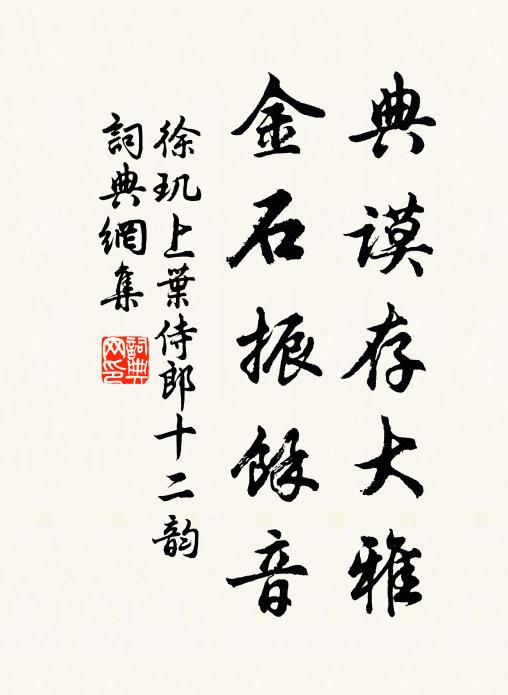 典謨存大雅
金石振餘音
徐玑上葉侍郎十二韵
詞典網集
詞典網印